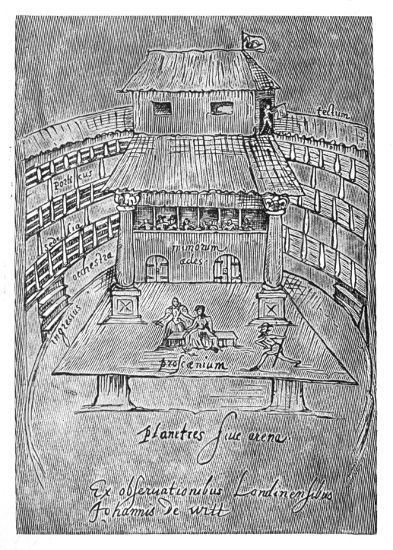 tectum
porticus
sedilia
orchestra
mimorum
ædes
ingressus
proscænium
planities ſiue arena
Ex obſeruationibus Londinenſibus
Johannis de Witt